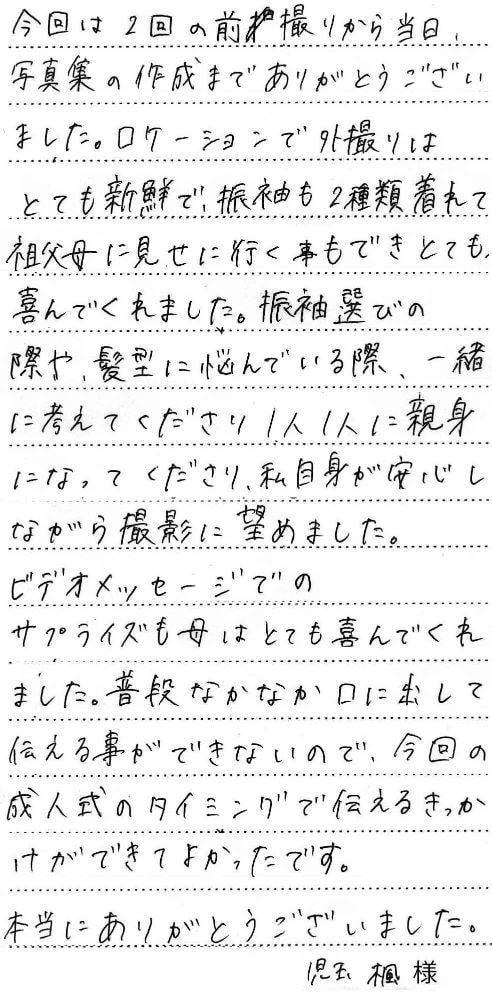 今回は2回の前撮りから当日、
写真集の作成までありがとうござい
ました。ロケーションで外撮りは
とても新鮮で、振袖も2種類着れて
祖父母に見せに行く事もできとても
喜んでくれました。振袖選びの
際や、髪型に悩んでいる際、一緒
に考えてくださり1人1人に親身
になってくださり、私自身が安心し
ながら撮影に望めました。
ビデオメッセージでの
サプライズも母はとても喜んでくれ
ました。普段なかなか口に出して
伝える事ができないので、今回の
成人式のタイミングで伝えるきっか
けができてよかったです。
本当にありがとうございました。
児玉 楓 様